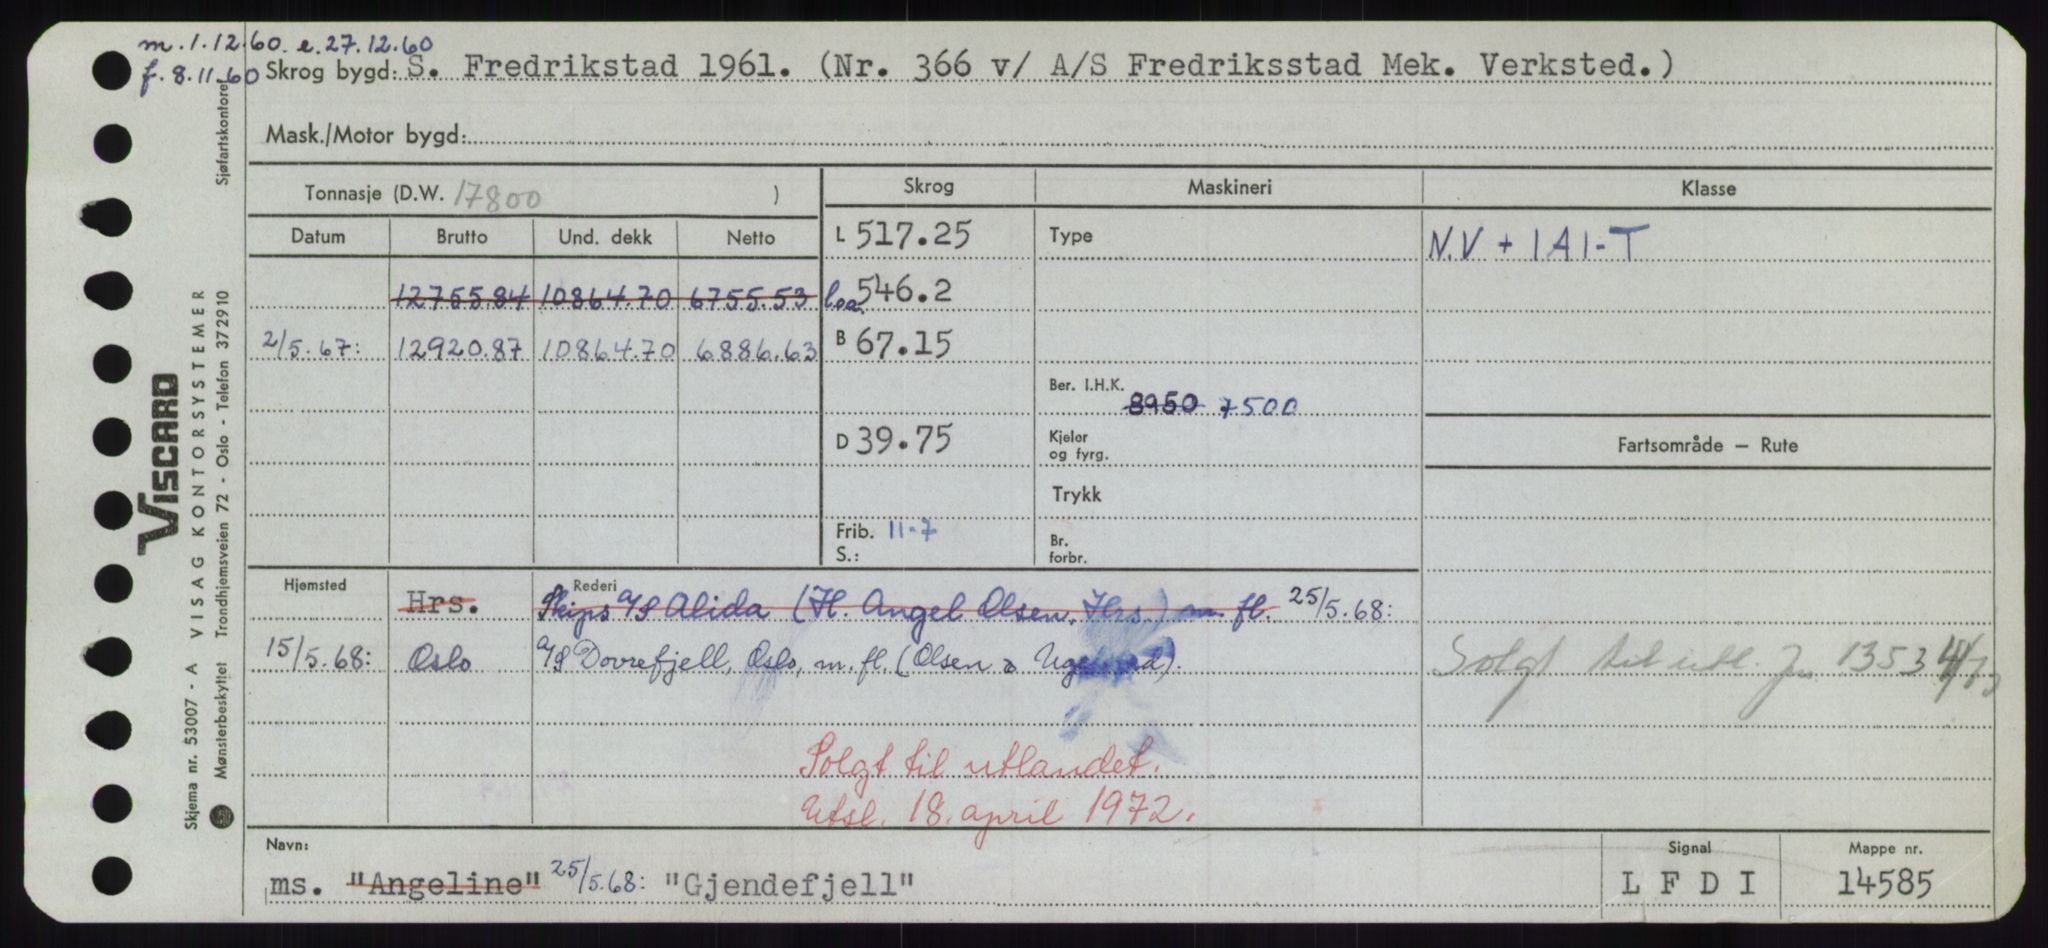 m. 1.12.60. e. 27.12.60
f. 8.11-60 Skrog bygd: S. Fredrikstad 1961. (Nr. 366 v/ A/S Fredriksstad Mek. Verksted.)
Mask./Motor bygd:
Tonnasje (D.W. 17800 )
Skrog Maskineri Klasse
Datum Brutto Und. dekk Netto
L 517.25 Type N.V + 1A1-T
12755.84 10864.70 6755.53 loa 546.2
2/5.67: 12920.87 10864.70 6886.63 B 67.15
Ber. I.H.K. 8950 7500
D 39.75 Kjeler og fyrg. Fartsområde — Rute
Trykk
Frib. 11-7
S.:
Br. forbr.
Hjemsted Rederi
Hrs. Skips A/S Alida (H. Angel Olsen, Hrs.) m. fl. 25/5.68:
15/5.68: Oslo A/S Dovrefjell, Oslo, m. fl. (Olsen &
Solgt til utl. 1353
Solgt til utlandet.
Utsl. 18. april 1972.
Navn: Signal Mappe nr.
ms. "Angeline" 25/5.68: "Gjendefjell" L F D I 14585
VISCARD
Skjema nr. 53007 - A VISAG KONTORSYSTEMER
Mønsterbeskyttet Trondhjemsveien 72 - Oslo - Telefon 372910 Sjøfartskontoret